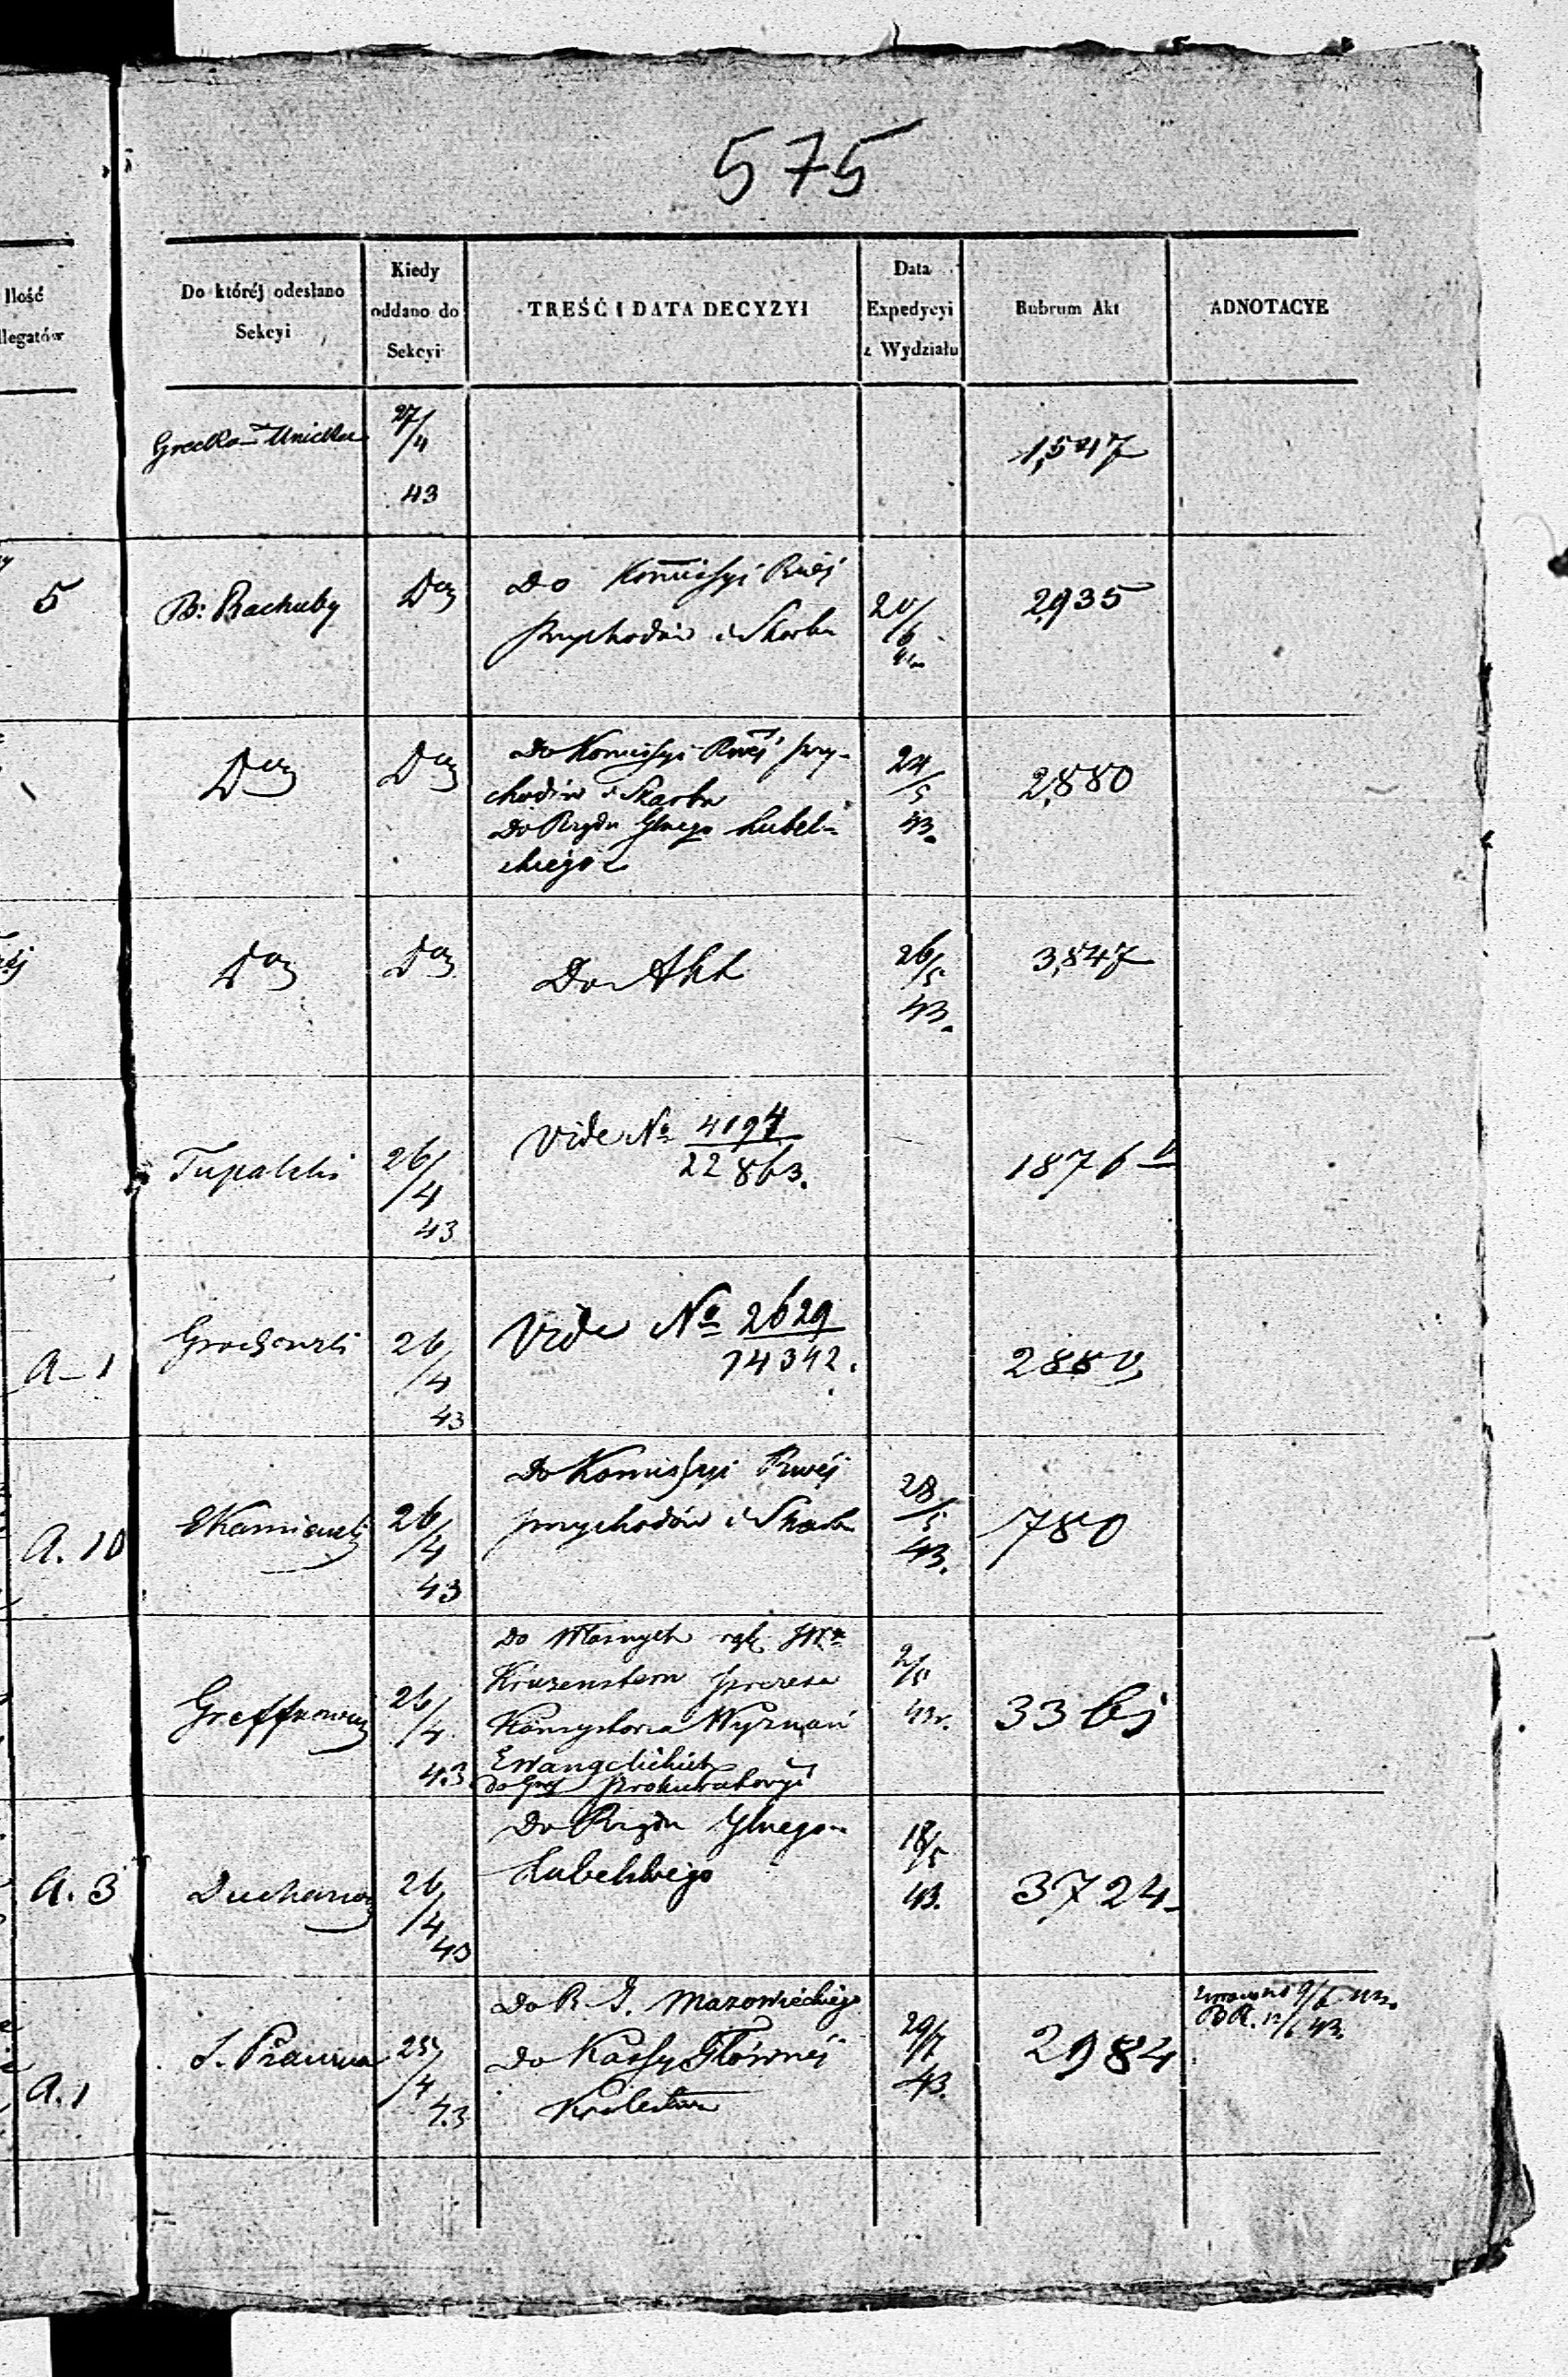 575
Ilość
llegatów
Do któréj odesłano
Sekcyi
Kiedy
oddano do
Sekcyi
TREŚĆ I DATA DECYZYI
Data
Expedycyi
z Wydziału
Rubrum Akt
ADNOTACYE
Grecko-Unicka
27/4
43
1,547
5
B: Rachuby
Do Kommissyi
Przychodów i Skarbu
20/
6
2,935
Do Komissyi Rwéj Przy-
chodów i Skarbu
Do Rządu Glnego Lubel-
skiego
24/5
43.
2,880
Do Akt
26/5
43.
3,847
26/4
43
Vide No 4194
22863.
1876
A-1
Grochowski
26/4
43
Vide No 2629
14342.
2880
A. 10
26/4
43
Do Komissyi Rwéj
Przychodów i Skarbu
28/5
43.
780
26/4
43
Do Własnych rąk JW
Kruzenstern Prezesa
Konsystorza Wyznań
Ewangelickich
Prokuratoryi
2/5
43r.
33
A. 3
26/4
43
Do Rządu Glnego
Lubelskiego
18/5
43.
3724
A. 1
S. Prawna
25/4
43
Do R. G. Mazowieckiego
Do Kassy Głównéj
Królestwa
29/7
43.
2984
9/6
B R. 12/6 43.